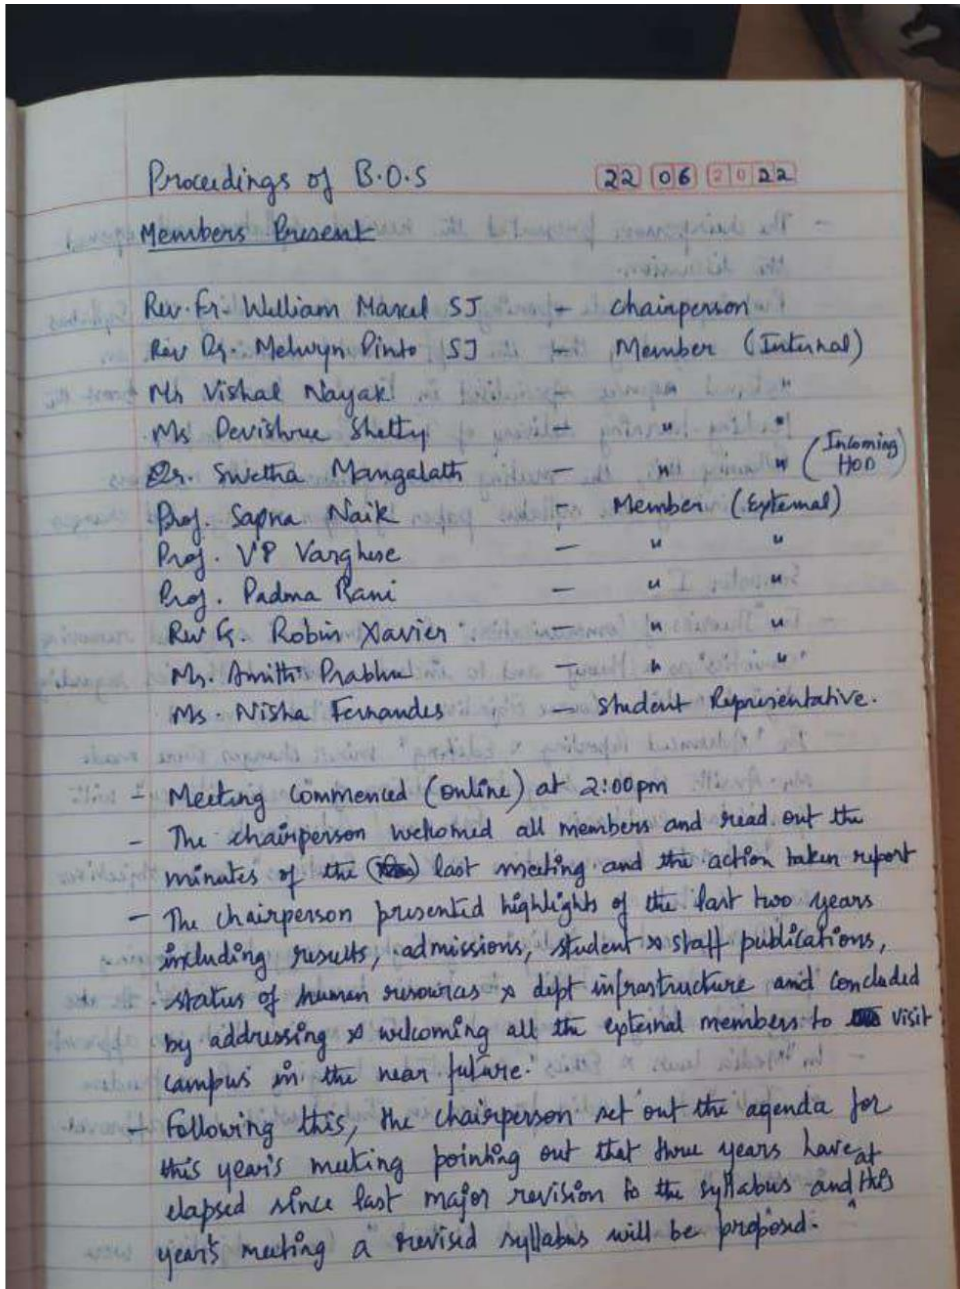 Proceedings of B.O.S 22 06 2022
Members Present
Rev. Fr. William Marcel SJ - Chairperson
Rev Dr. Melwyn Pinto SJ - Member (Internal)
Mr Vishal Nayak
Ms Devishree Shetty - " "
Dr. Swetha Mangalath - " " (Incoming HOD)
Prof. Sapna Naik - Member (External)
Prof. VP Varghese - " "
Prof. Padma Rani - " "
Rev Fr. Robin Xavier - " "
Mr. Amith Prabhu - " "
Ms. Nisha Fernandes - Student Representative.
- Meeting Commenced (online) at 2:00pm
- The chairperson welcomed all members and read out the
minutes of the last meeting and the action taken report
- The chairperson presented highlights of the last two years
including results, admissions, student & staff publications,
status of human resources & dept infrastructure and concluded
by addressing & welcoming all the external members to visit
campus in the near future.
- Following this, the chairperson set out the agenda for
this year's meeting pointing out that three years have
elapsed since last major revision to the syllabus and at this
year's meeting a revised syllabus will be proposed.